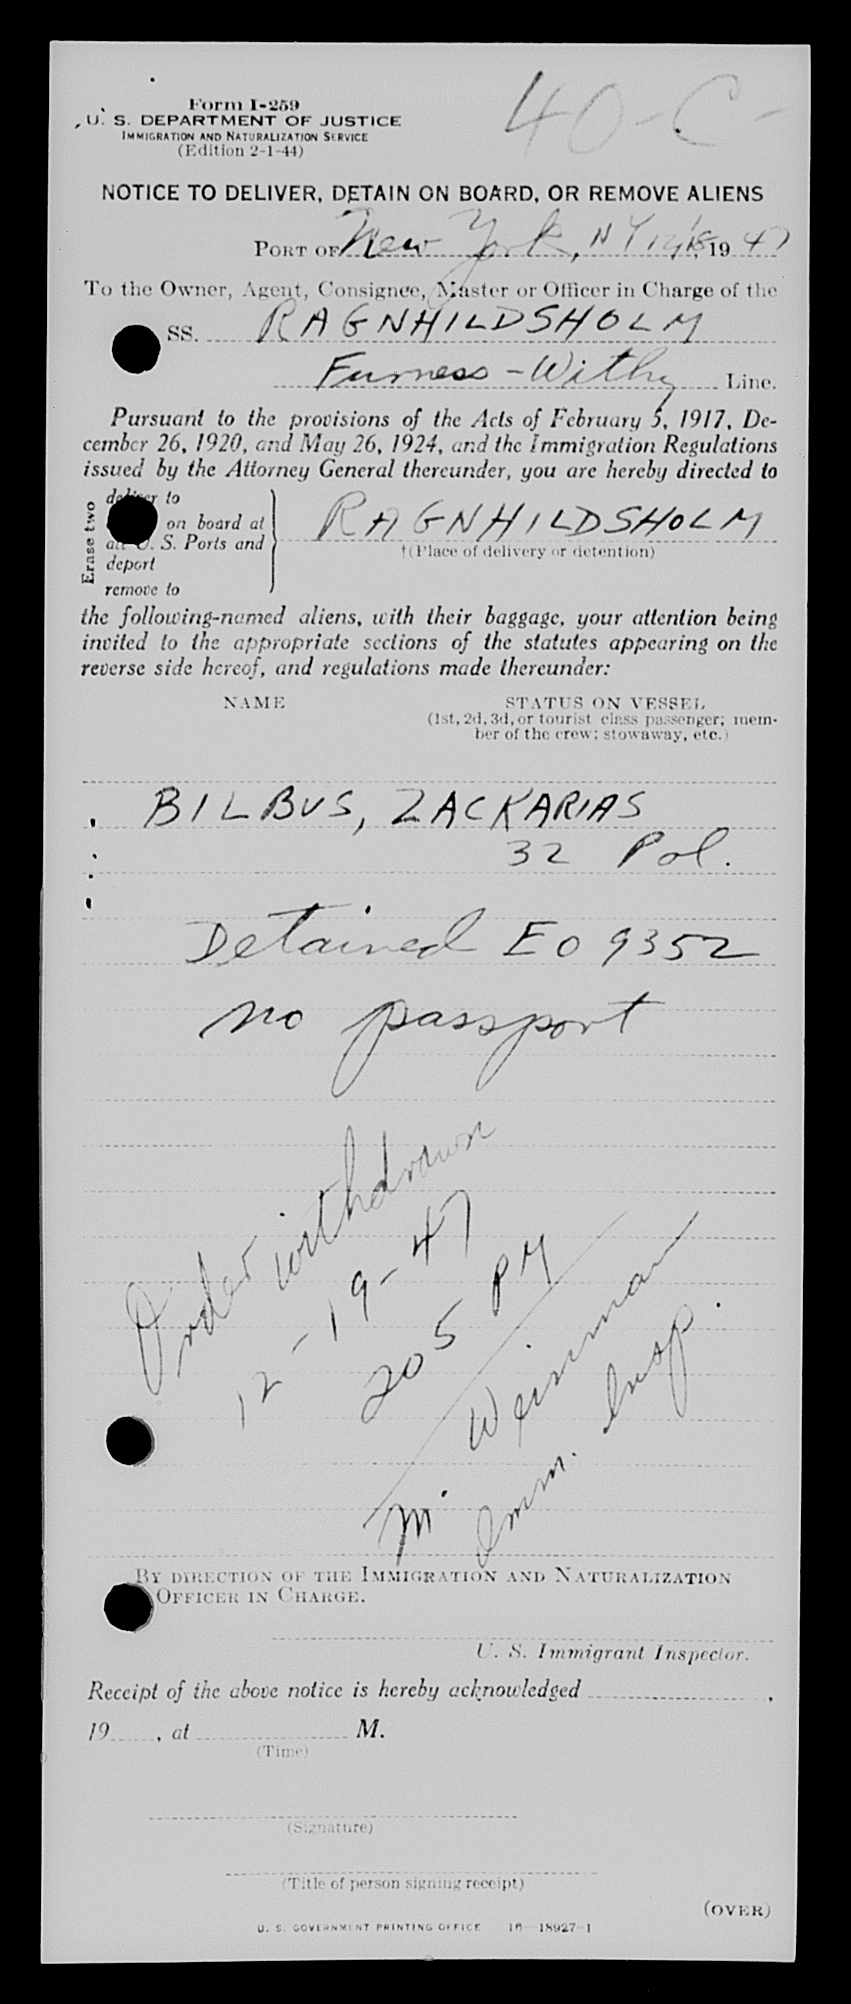 Form I-259
U. S. DEPARTMENT OF JUSTICE
IMMIGRATION AND NATURALIZATION SERVICE
(Edition 2-1-44)
40-C-
NOTICE TO DELIVER, DETAIN ON BOARD, OR REMOVE ALIENS
PORT OF New York, NY 12/18, 1947
To the Owner, Agent, Consignee, Master or Officer in Charge of the
SS. RAGNHILDSHOLM
Furness-Withy Line.
Pursuant to the provisions of the Acts of February 5, 1917, De-
cember 26, 1920, and May 26, 1924, and the Immigration Regulations
issued by the Attorney General thereunder, you are hereby directed to
Erase two
deliver to
on board at
all U. S. Ports and
deport
remove to
RAGNHILDSHOLM
†(Place of delivery or detention)
the following-named aliens, with their baggage, your attention being
invited to the appropriate sections of the statutes appearing on the
reverse side hereof, and regulations made thereunder:
NAME STATUS ON VESSEL
(1st, 2d, 3d, or tourist class passenger; mem-
ber of the crew; stowaway, etc.)
BILBUS, ZACKARIAS
32 Pol.
Detained EO 9352
no passport
Order withdrawn
12-19-47
205 PM
M. Weisman
Imm. Insp.
BY DIRECTION OF THE IMMIGRATION AND NATURALIZATION
OFFICER IN CHARGE.
U. S. Immigrant Inspector.
Receipt of the above notice is hereby acknowledged ,
19 , at M.
(Time)
(Signature)
(Title of person signing receipt)
(OVER)
U. S. GOVERNMENT PRINTING OFFICE 16-18927-1